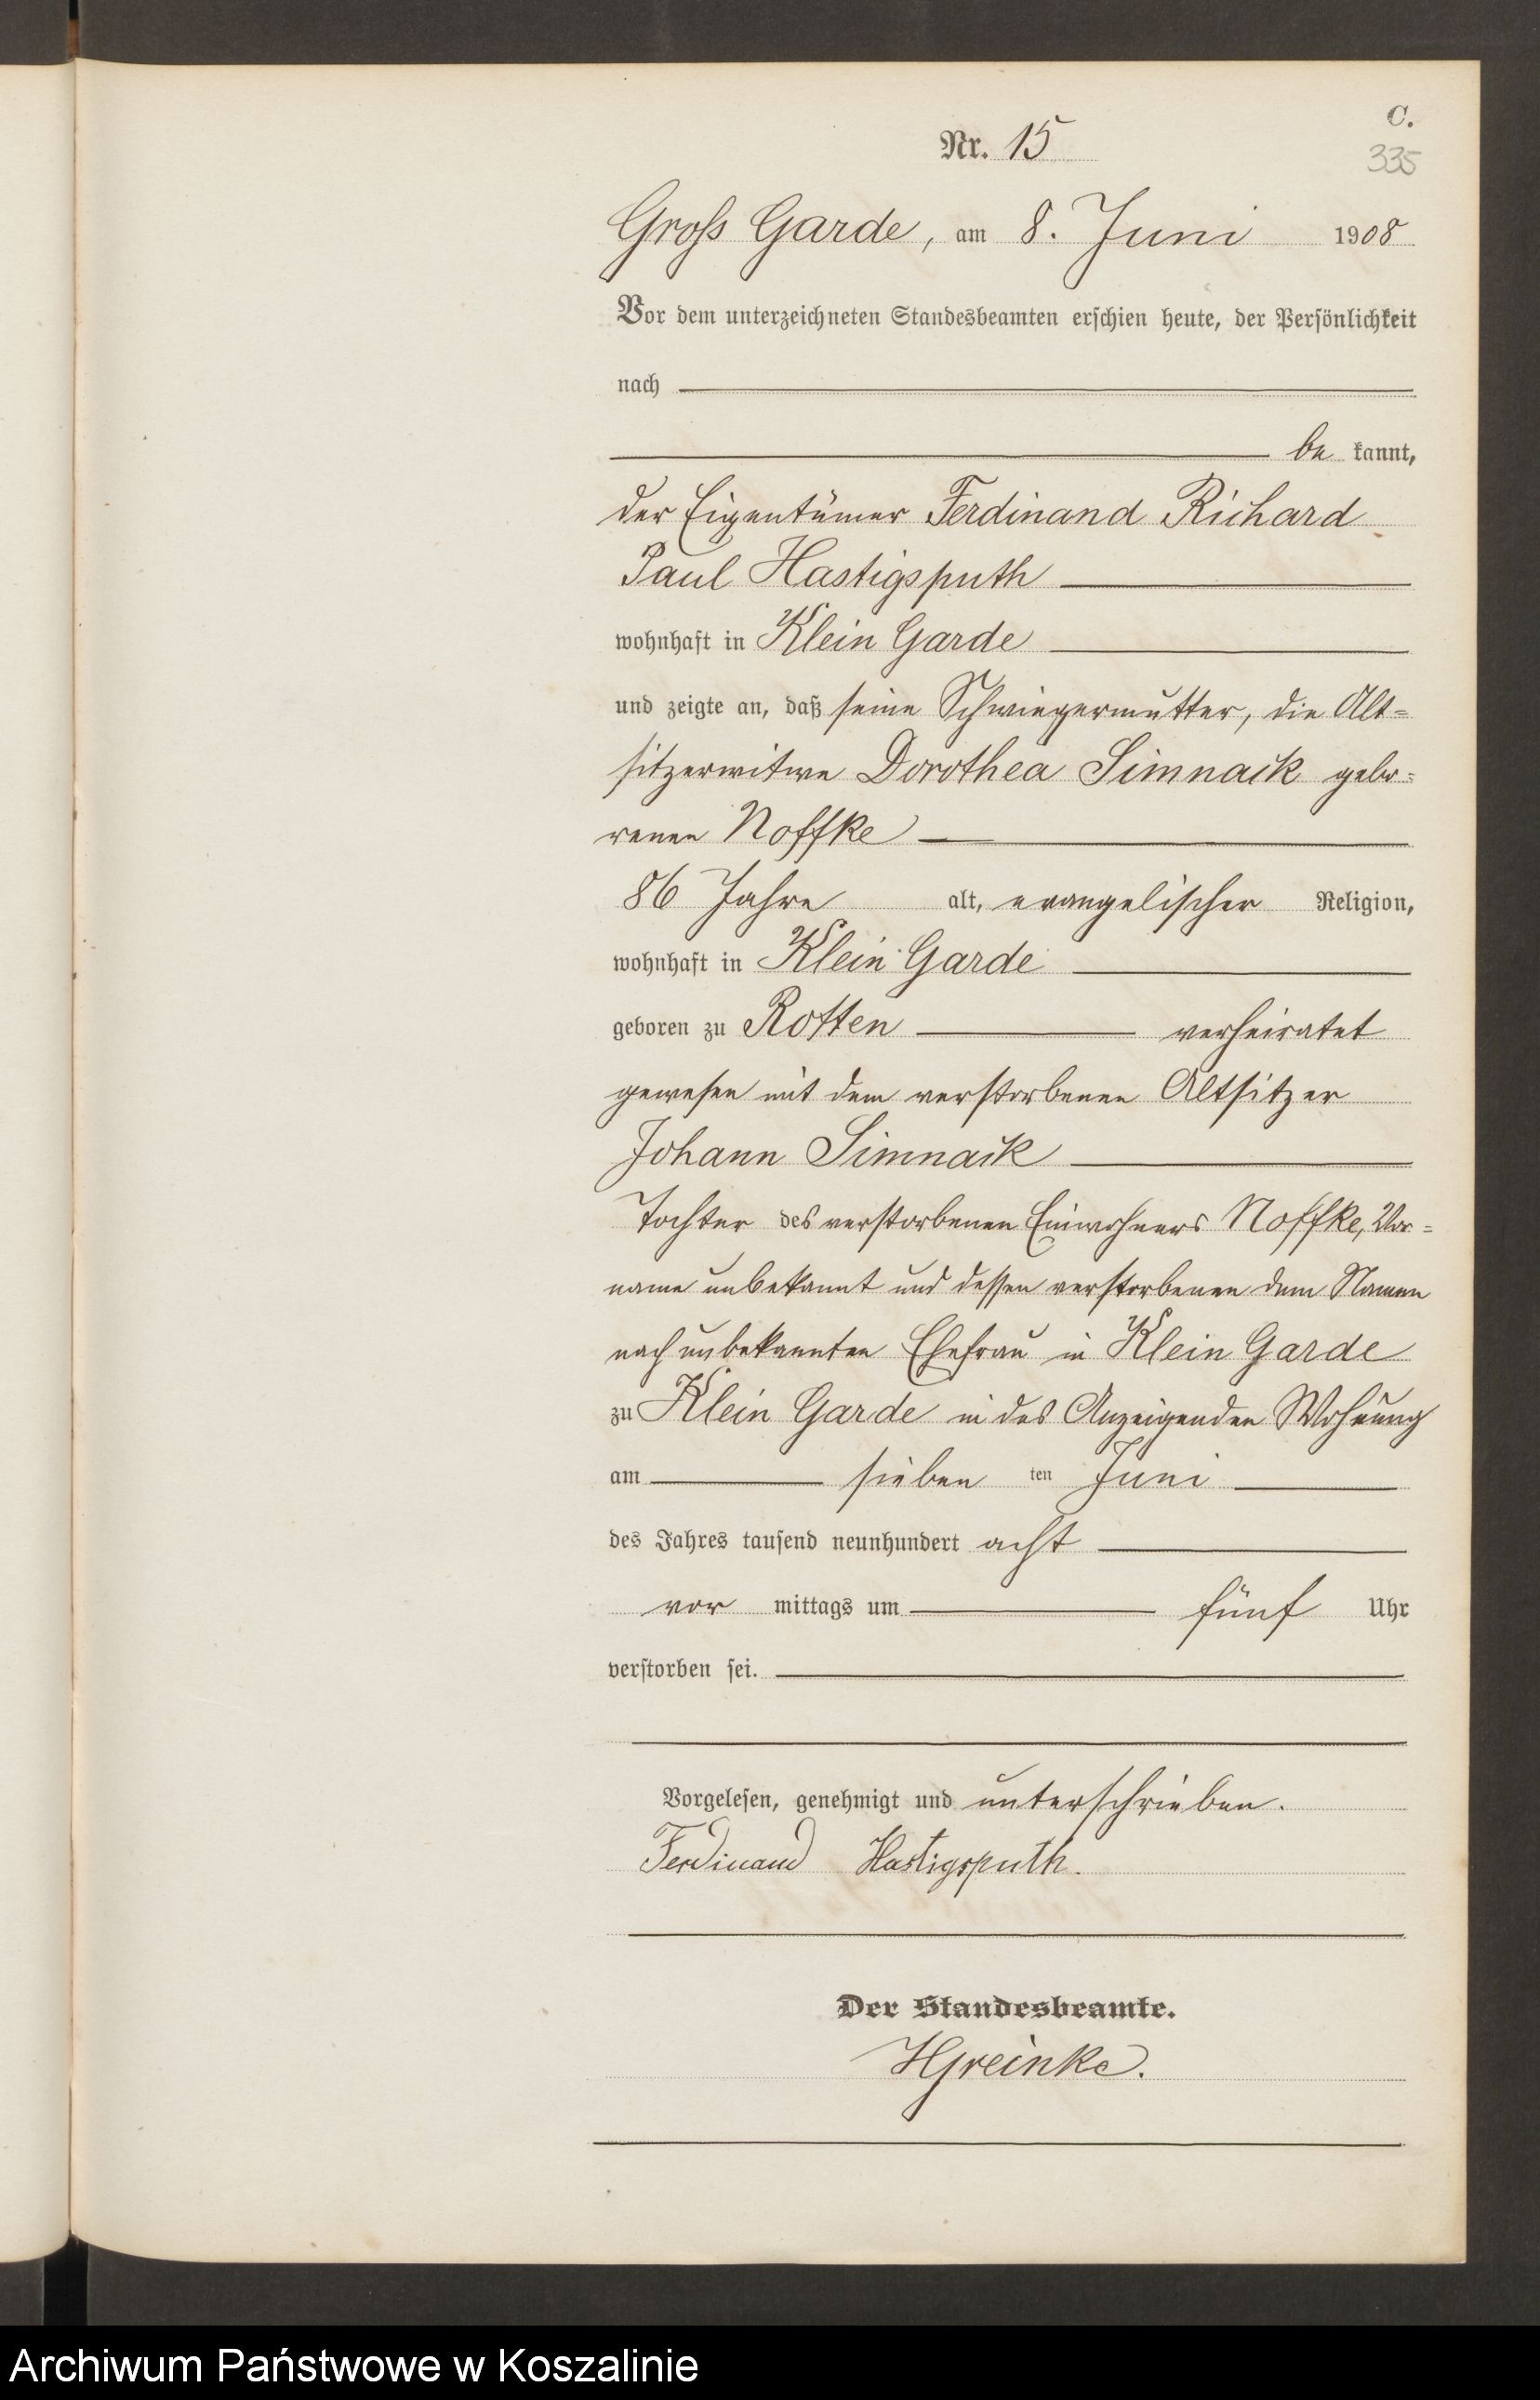 C.
Nr. 15
335
Gross Garde, am 8. Juni 1908
Vor dem unterzeichneten Standesbeamten erschien heute, der Persönlichkeit
nach
be kannt,
der Eigentümer Ferdinand Richard
Paul Hastigsputh
wohnhaft in Klein Garde
und zeigte an, daß seine Schwiegermutter, die Alt-
sitzerwitwe Dorothea Simnack gebo-
renen Noffke
86 Jahre alt, evangelischer Religion,
wohnhaft in Klein Garde
geboren zu Rotten verheiratet
gewesen mit dem verstorbenen Altsitzer
Johann Simnack
Tochter des verstorbenen Einwohners Noffke, Vor-
name unbekannt und dessen verstorbenen dem Namen
nach unbekannten Ehefrau in Klein Garde
zu Klein Garde in des Anzeigenden Wohnung
am sieben ten Juni
des Jahres tausend neunhundert acht
vor mittags um fünf Uhr
verstorben sei.
Vorgelesen, genehmigt und unterschrieben.
Ferdinand Hastigsputh.
Der Standesbeamte.
HGreinke.
Archiwum Państwowe w Koszalinie